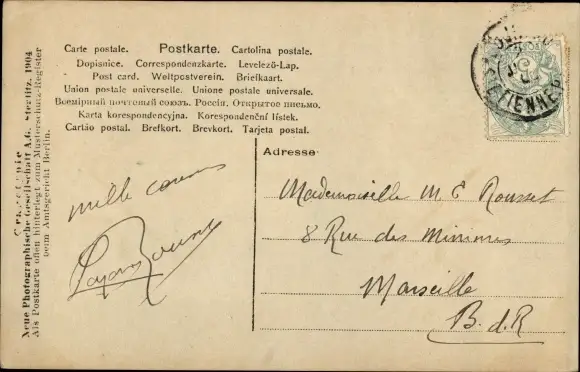 Carte postale. Postkarte. Cartolina postale.
Dopisnice. Correspondenzkarte. Levelező-Lap.
Post card. Weltpostverein. Briefkaart.
Union postale universelle. Unione postale universale.
Всемірный почтовый союзъ. Россія. Открытое письмо.
Karta korespondencyjna. Korespondenční lístek.
Cartão postal. Brefkort. Brevkort. Tarjeta postal.
Neue Photographische Gesellschaft A.G. Steglitz. 1904
Als Postkarte offen hinterlegt zum Musterschutz-Register
beim Amtsgericht Berlin.
ETIENNE
mille
Adresse
Mademoiselle M E Rousset
8 Rue des Minimes
Marseille
B. d. R